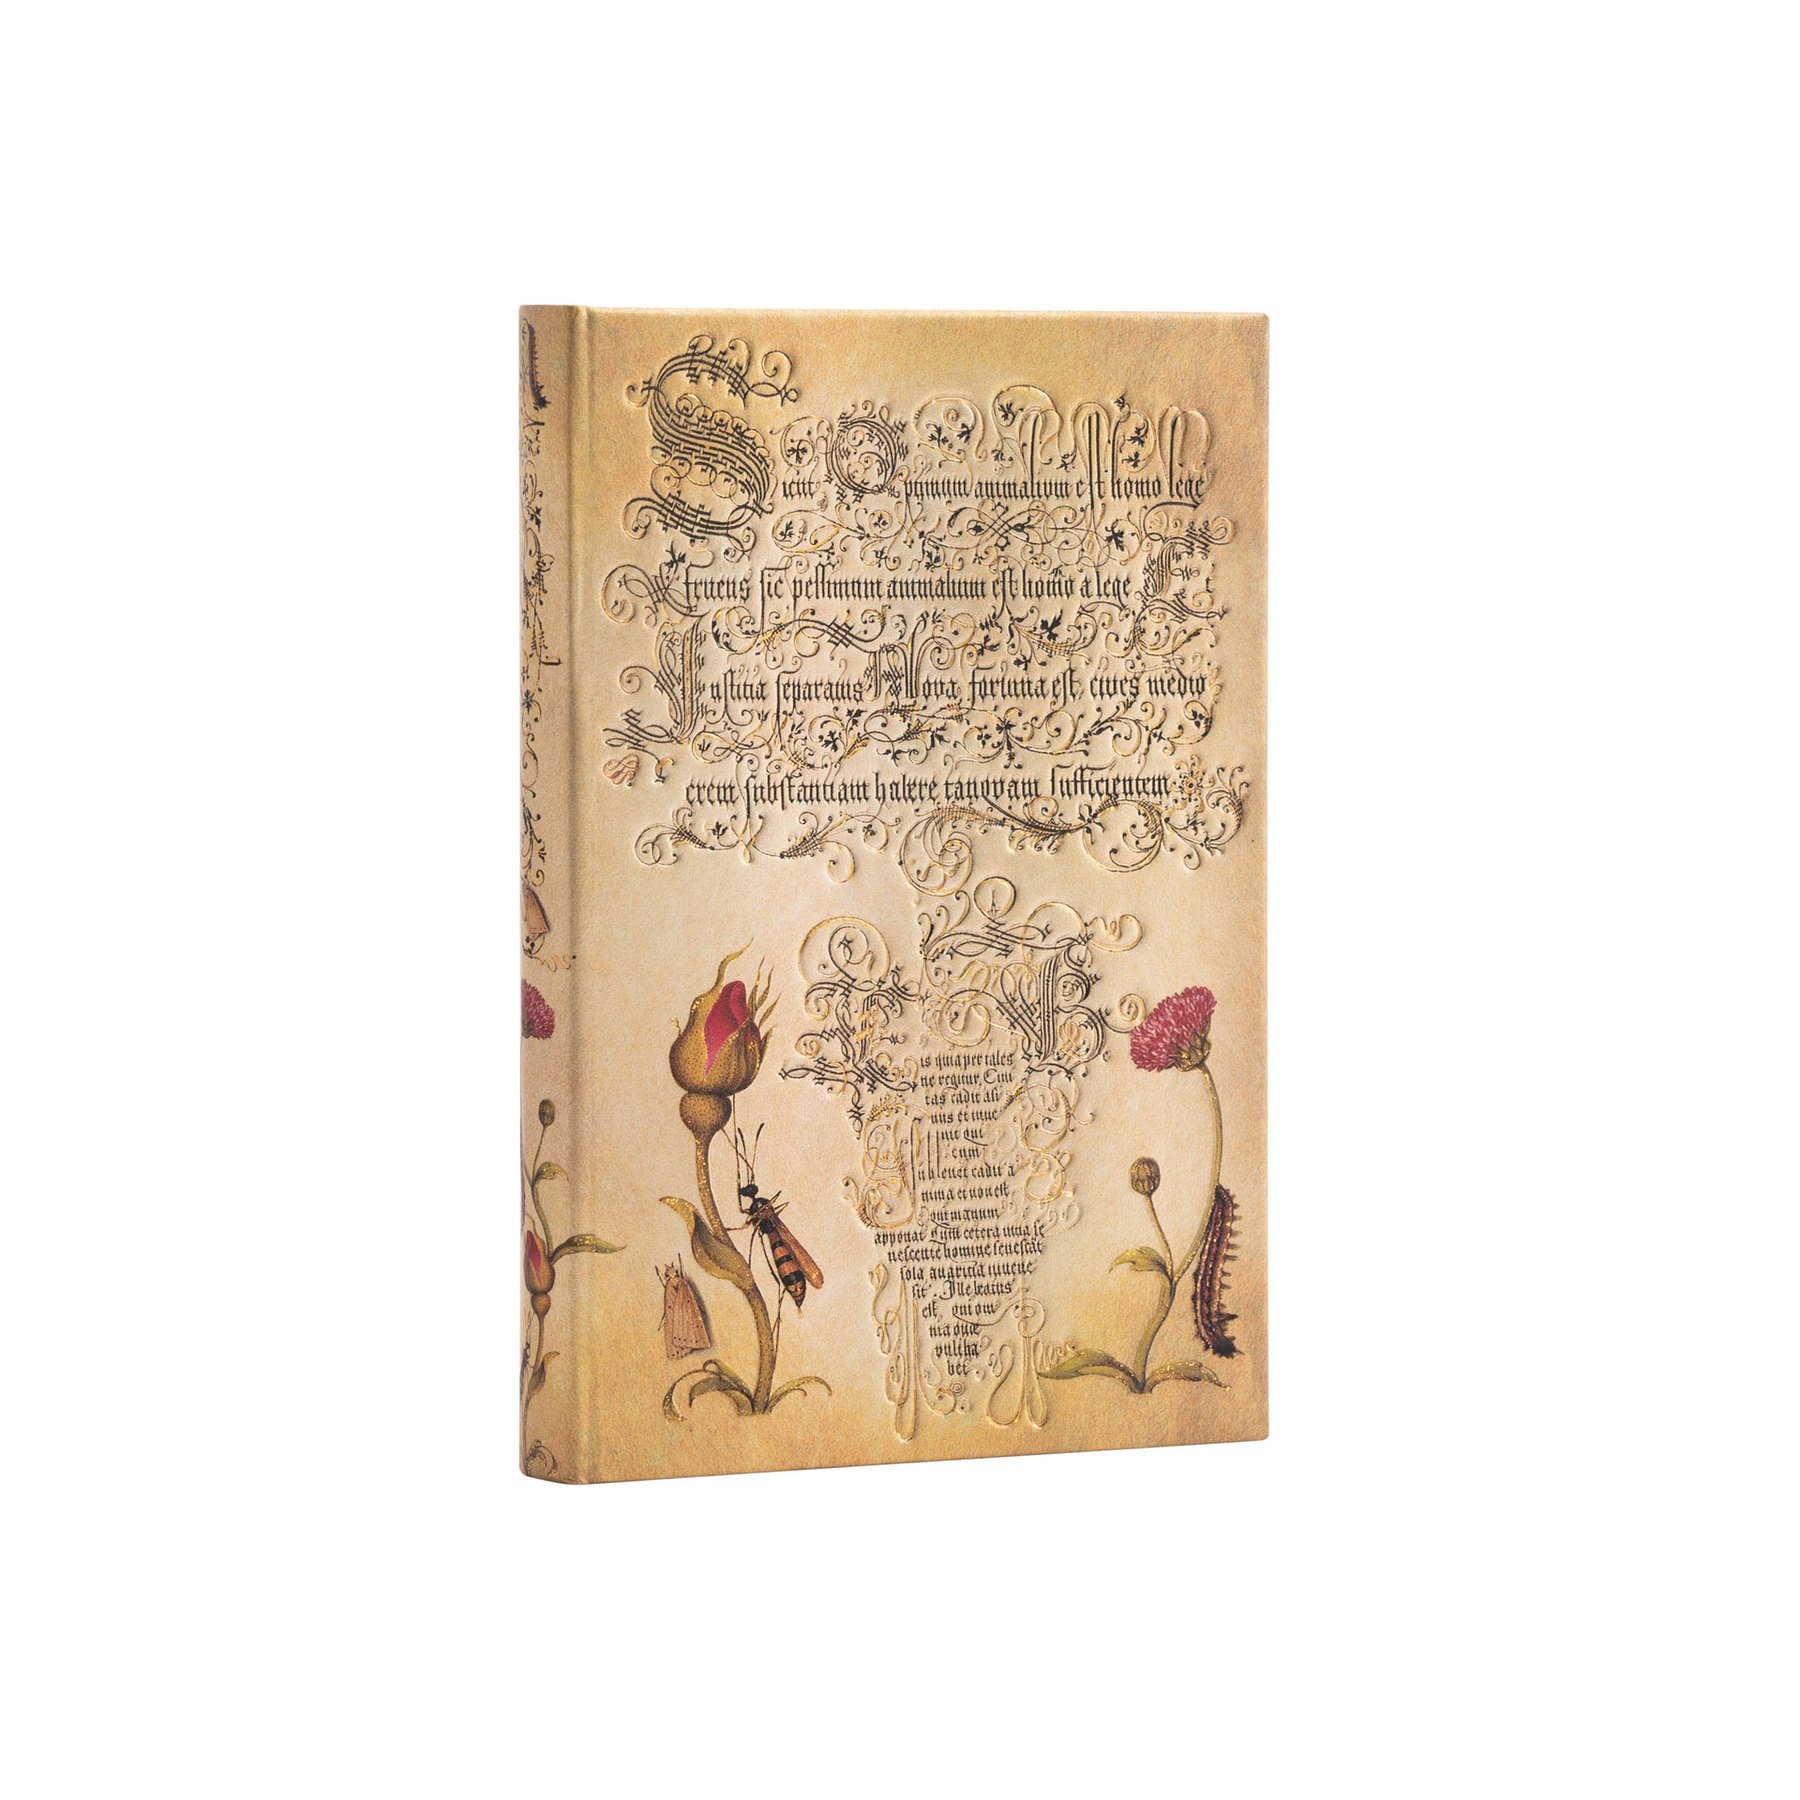 Sicut Optimum animalium est homo lege
fruens sic pessimum animalium est homo a lege Et
Iustitia separatus Nova fortuna est, cives medio
crem substantiam habere tanquam sufficientem
Bis quia per tales
ne regitur. Civi
tas cadit asi
nus et inve
nit qui
cum
sublevet cadit a
nima et non est
qui manum
apponat Cum cetera vitia se
nescente homine senescāt
sola avaritia iuvene
sit. Ille beatus
est, qui om
nia que
vult ha
bet